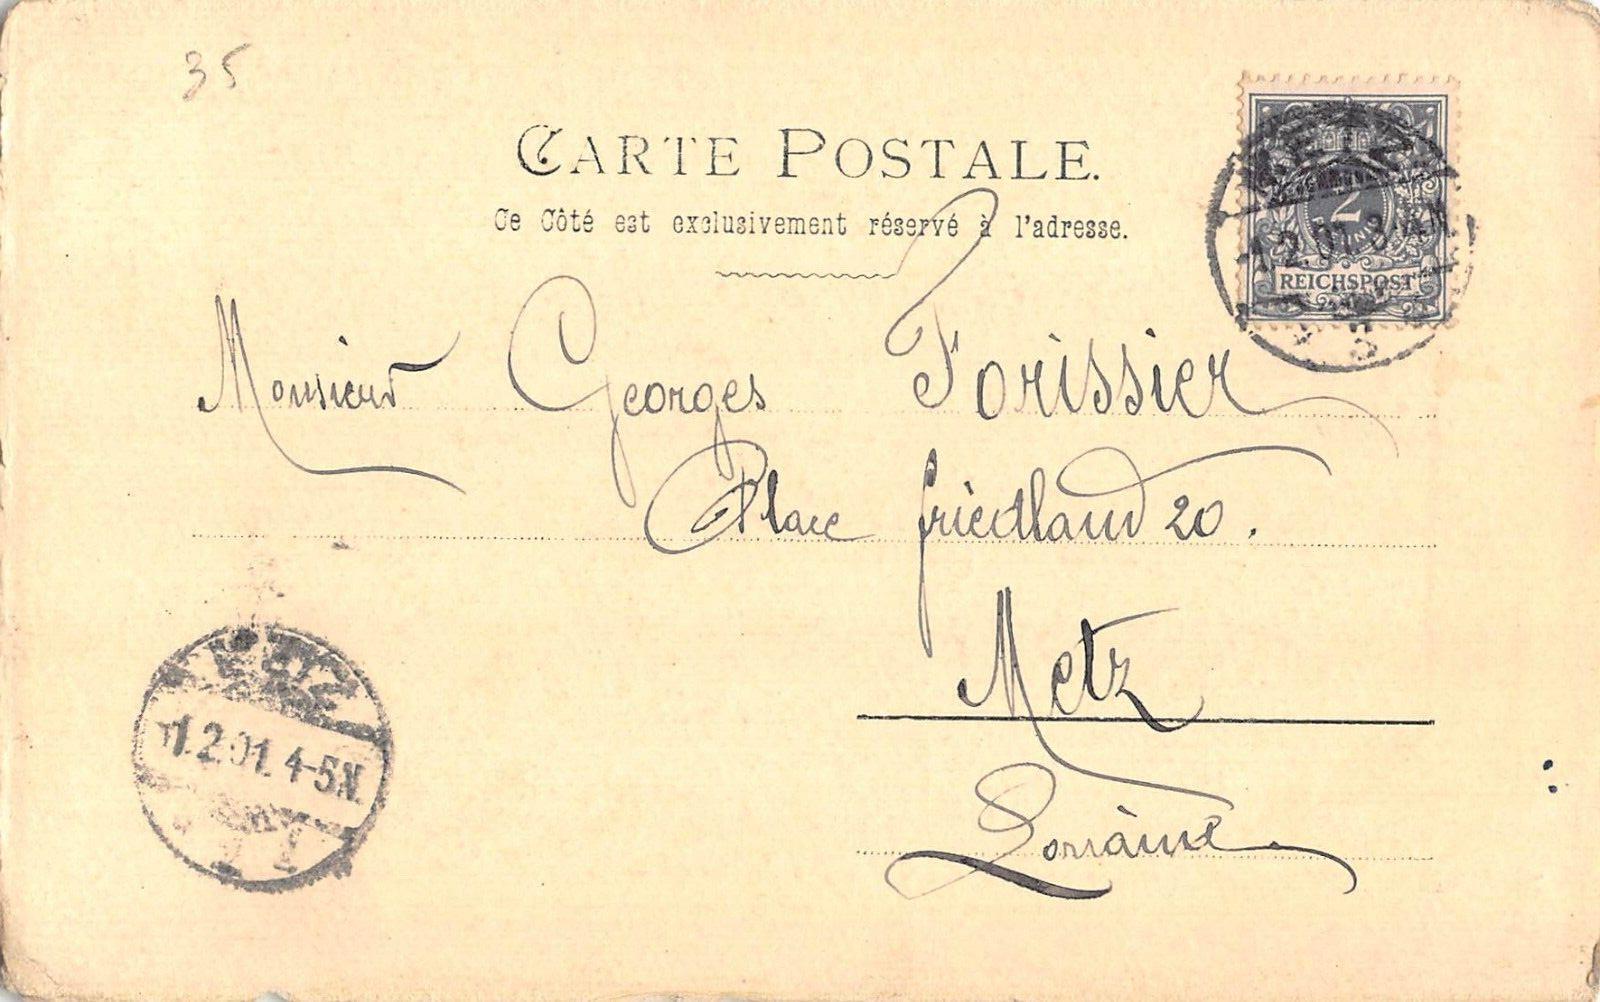 35
CARTE POSTALE.
Ce Côté est exclusivement réservé à l'adresse.
METZ
1.2.01. 3-4N.
2
REICHSPOST
Monsieur Georges Forissier
Place friedland 20.
Metz
Lorraine
METZ
1.2.01. 4-5N.